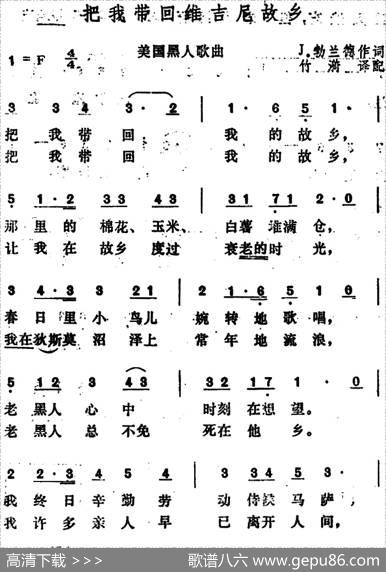 把我带回维吉尼故乡
1=F 4/4
美国黑人歌曲
J.勃兰德作词
竹漪译配
3 3 4 3· 2 | 1· 6 5 1 ·
把我带回 我的故乡,
把我带回 我的故乡,
5 1·2 33 43 | 31 71 2·0
那里的棉花、玉米、白薯堆满仓,
让我在故乡度过衰老的时光,
3 4·3 3·2 31 | 2 1·6 5 1 0
春日里小鸟儿婉转地歌唱,
我在狄斯莫沼泽上常年地流浪,
5 12 3 43 | 32 17 1· 0
老黑人心中时刻在想望。
老黑人总不免死在他乡。
2 2·3 4 5 4 | 3 34 51 3·
我终日辛勤劳动侍候马萨,
我许多亲人早已离开人间,
高清下载 >>>
歌谱八六 www.gepu86.com